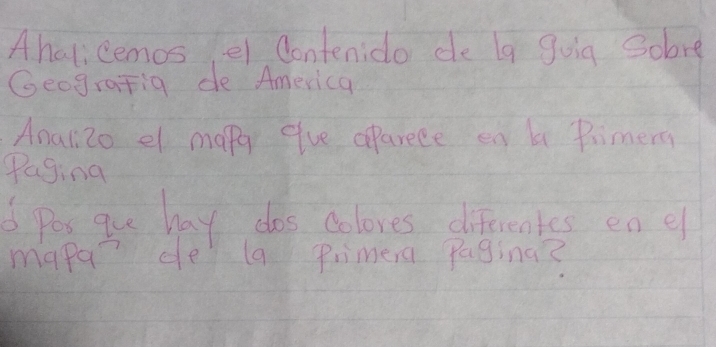 Analicemos el Contenido de la guia Sobre
Geografia de America
Analizo el mapa que aparece en la Primera
Pagina
¿Por que hay dos Colores diferentes en el
mapa de la Primera Pagina?